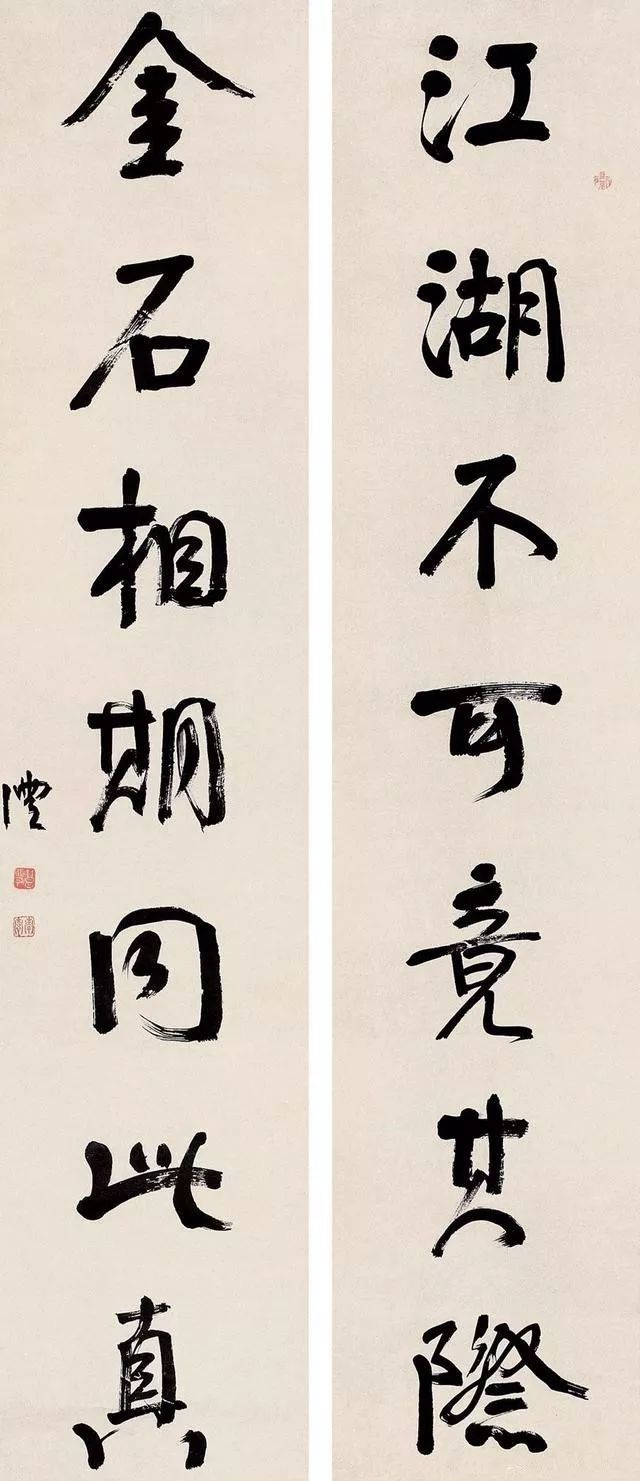 江湖不可竟其際
金石相期同此真
澧